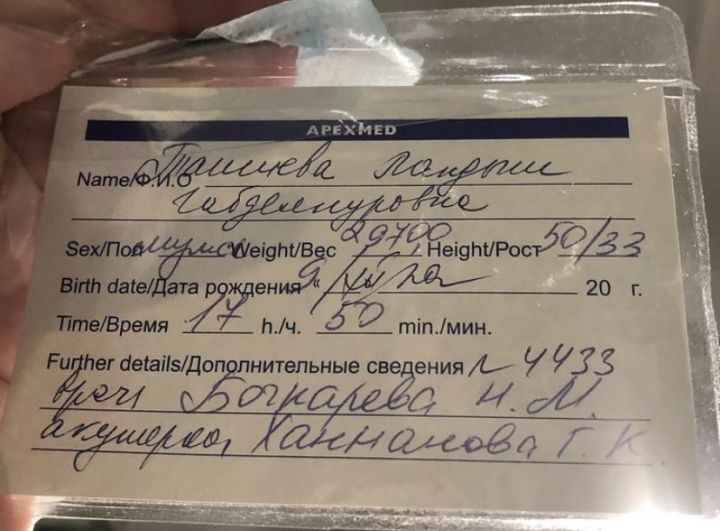 APEXMED
Name/Ф.И.О Ташиева Ландыш
Габделнуровна
Sex/Пол муж Weight/Вес 29700, Height/Рост 50/33
Birth date/Дата рождения 9 20 г.
Time/Время 17 h./ч. 50 min./мин.
Further details/Дополнительные сведения № 4433
врач Бочкарева Н.М.
акушерка Ханнанова Г.К